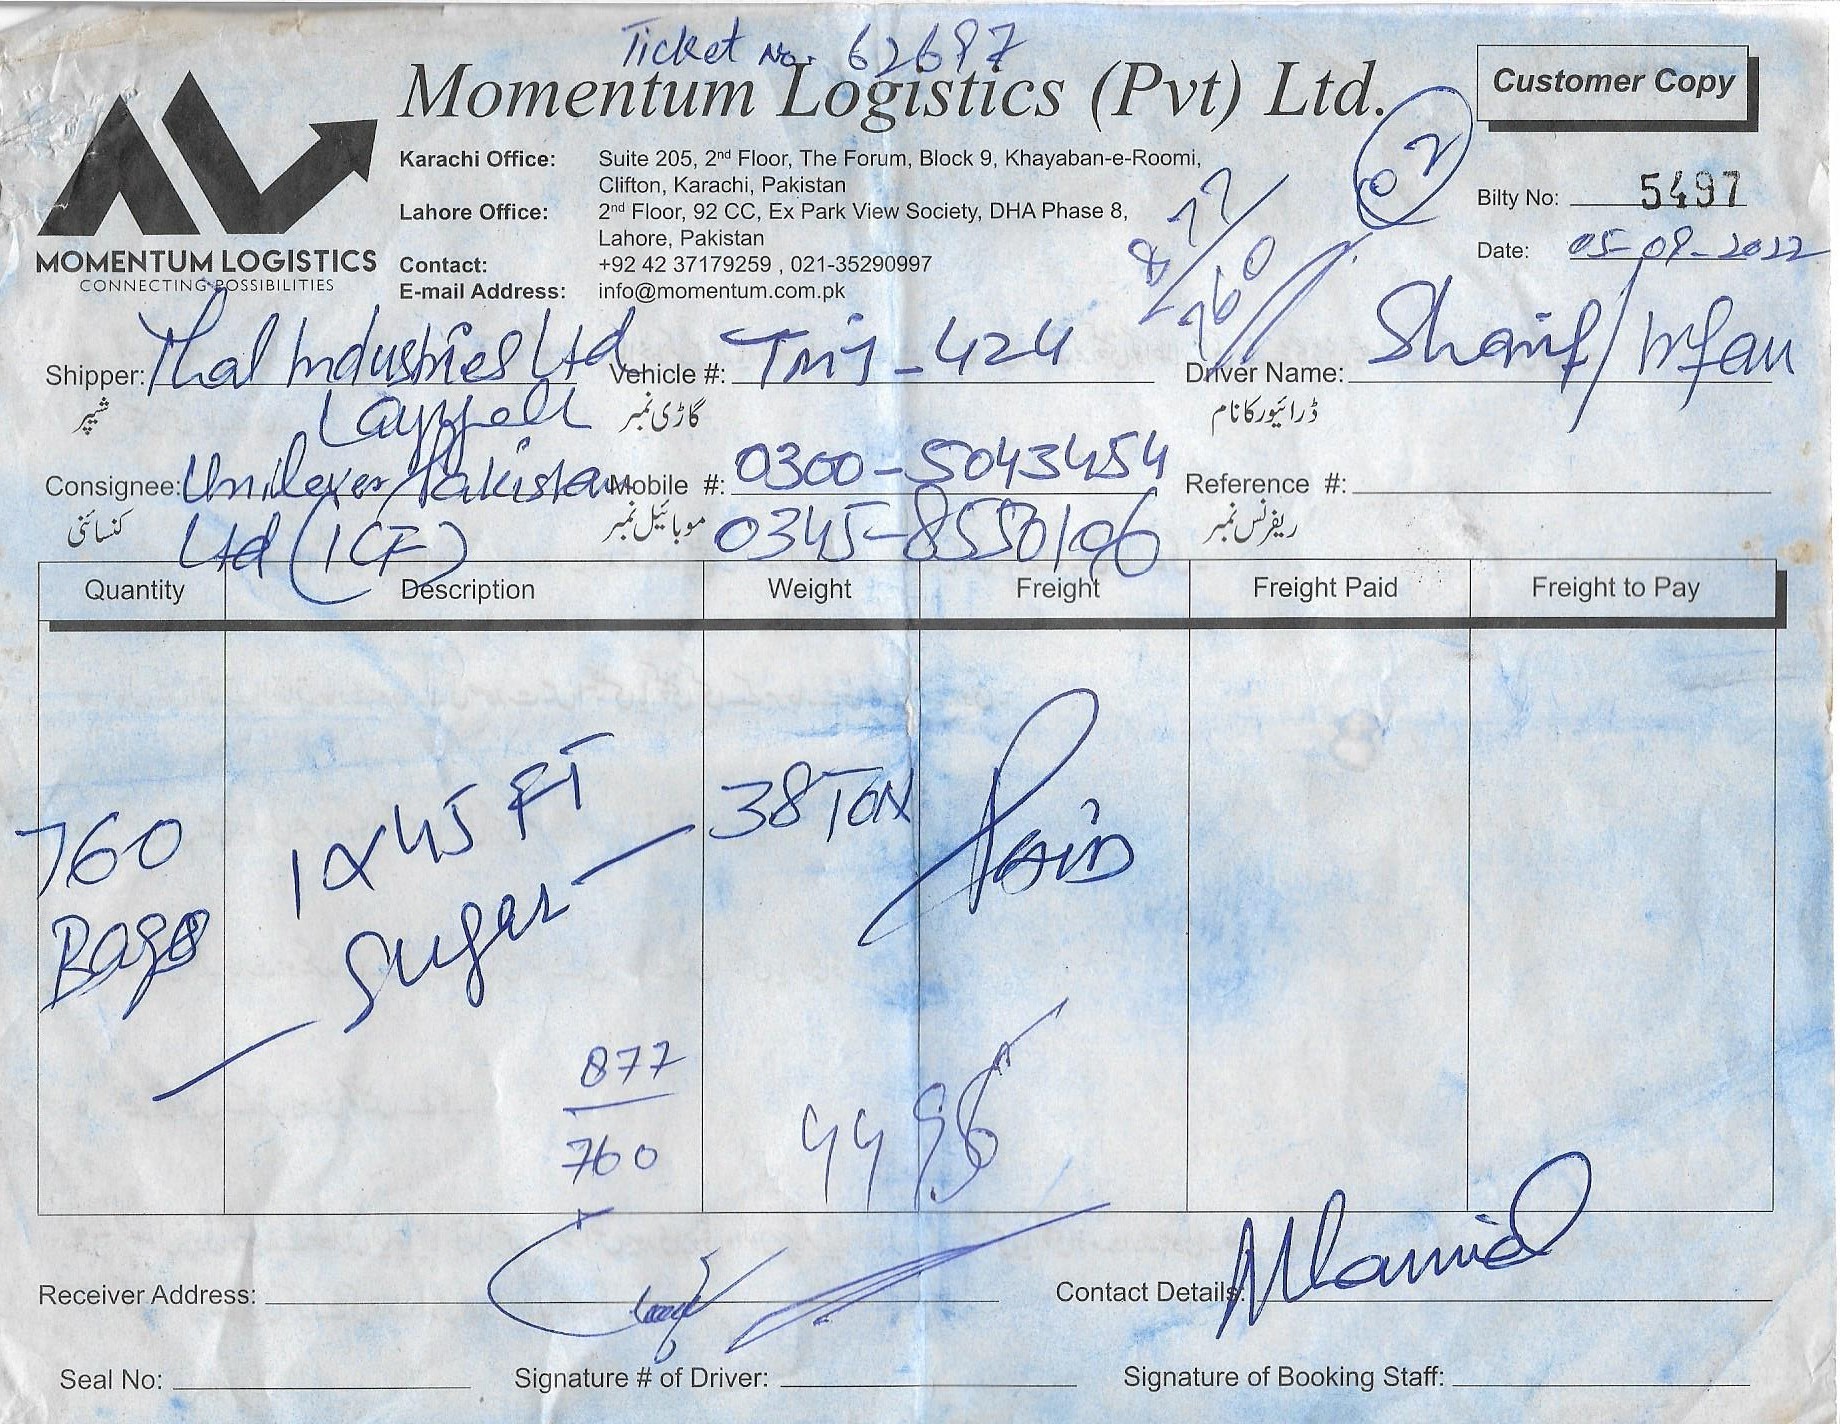 Ticket No. 62697
Momentum Logistics (Pvt) Ltd.
Customer Copy
MOMENTUM LOGISTICS
CONNECTING POSSIBILITIES
Karachi Office: Suite 205, 2nd Floor, The Forum, Block 9, Khayaban-e-Roomi,
Clifton, Karachi, Pakistan
Lahore Office: 2nd Floor, 92 CC, Ex Park View Society, DHA Phase 8,
Lahore, Pakistan
Contact: +92 42 37179259 , 021-35290997
E-mail Address: info@momentum.com.pk
02
877
760
Bilty No: 5497
Date: 05-09-2022
Shipper: Thal Industries Ltd Vehicle #: TMJ-424 Driver Name: Sharif/Irfan
شپر Layyah گاڑی نمبر ڈرائیور کا نام
Consignee: Unilever Pakistan Mobile #: 0300-5043454 Reference #:
کنسائنی Ltd (ICF) موبائیل نمبر 0345-8550196 ریفرنس نمبر
Quantity Description Weight Freight Freight Paid Freight to Pay
760 1x45 FT 38 TON Paid
Bags Sugar
877
760
Receiver Address: Contact Details:
Seal No: Signature # of Driver: Signature of Booking Staff: